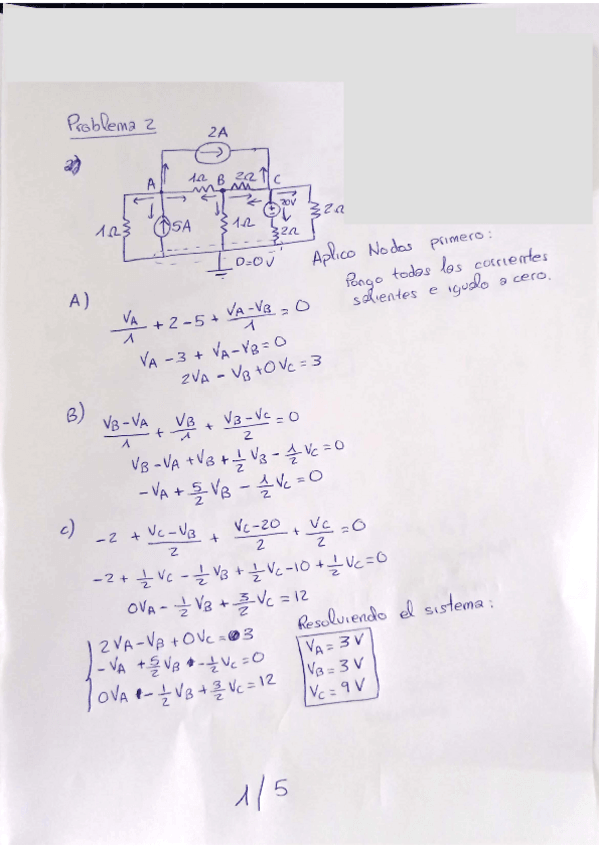 Problema 2
a)
2A
A 1Ω B 2Ω C
1Ω 5A 1Ω 20V 2Ω 2Ω
0=0V
Aplico Nodos primero:
Pongo todas las corrientes
salientes e igualo a cero.
A)
VA/1 + 2 - 5 + (VA-VB)/1 = 0
VA - 3 + VA - VB = 0
2VA - VB + 0VC = 3
B)
(VB-VA)/1 + VB/1 + (VB-VC)/2 = 0
VB - VA + VB + 1/2 VB - 1/2 VC = 0
-VA + 5/2 VB - 1/2 VC = 0
c)
-2 + (VC-VB)/2 + (VC-20)/2 + VC/2 = 0
-2 + 1/2 VC - 1/2 VB + 1/2 VC - 10 + 1/2 VC = 0
0VA - 1/2 VB + 3/2 VC = 12
2VA - VB + 0VC = 3
-VA + 5/2 VB - 1/2 VC = 0
0VA - 1/2 VB + 3/2 VC = 12
Resolviendo el sistema:
VA = 3V
VB = 3V
VC = 9V
1/5